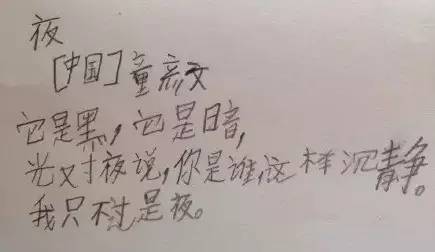 夜
[中国]童
它是黑，它是暗，
光对夜说，你是谁，这样沉静。
我只不过是夜。